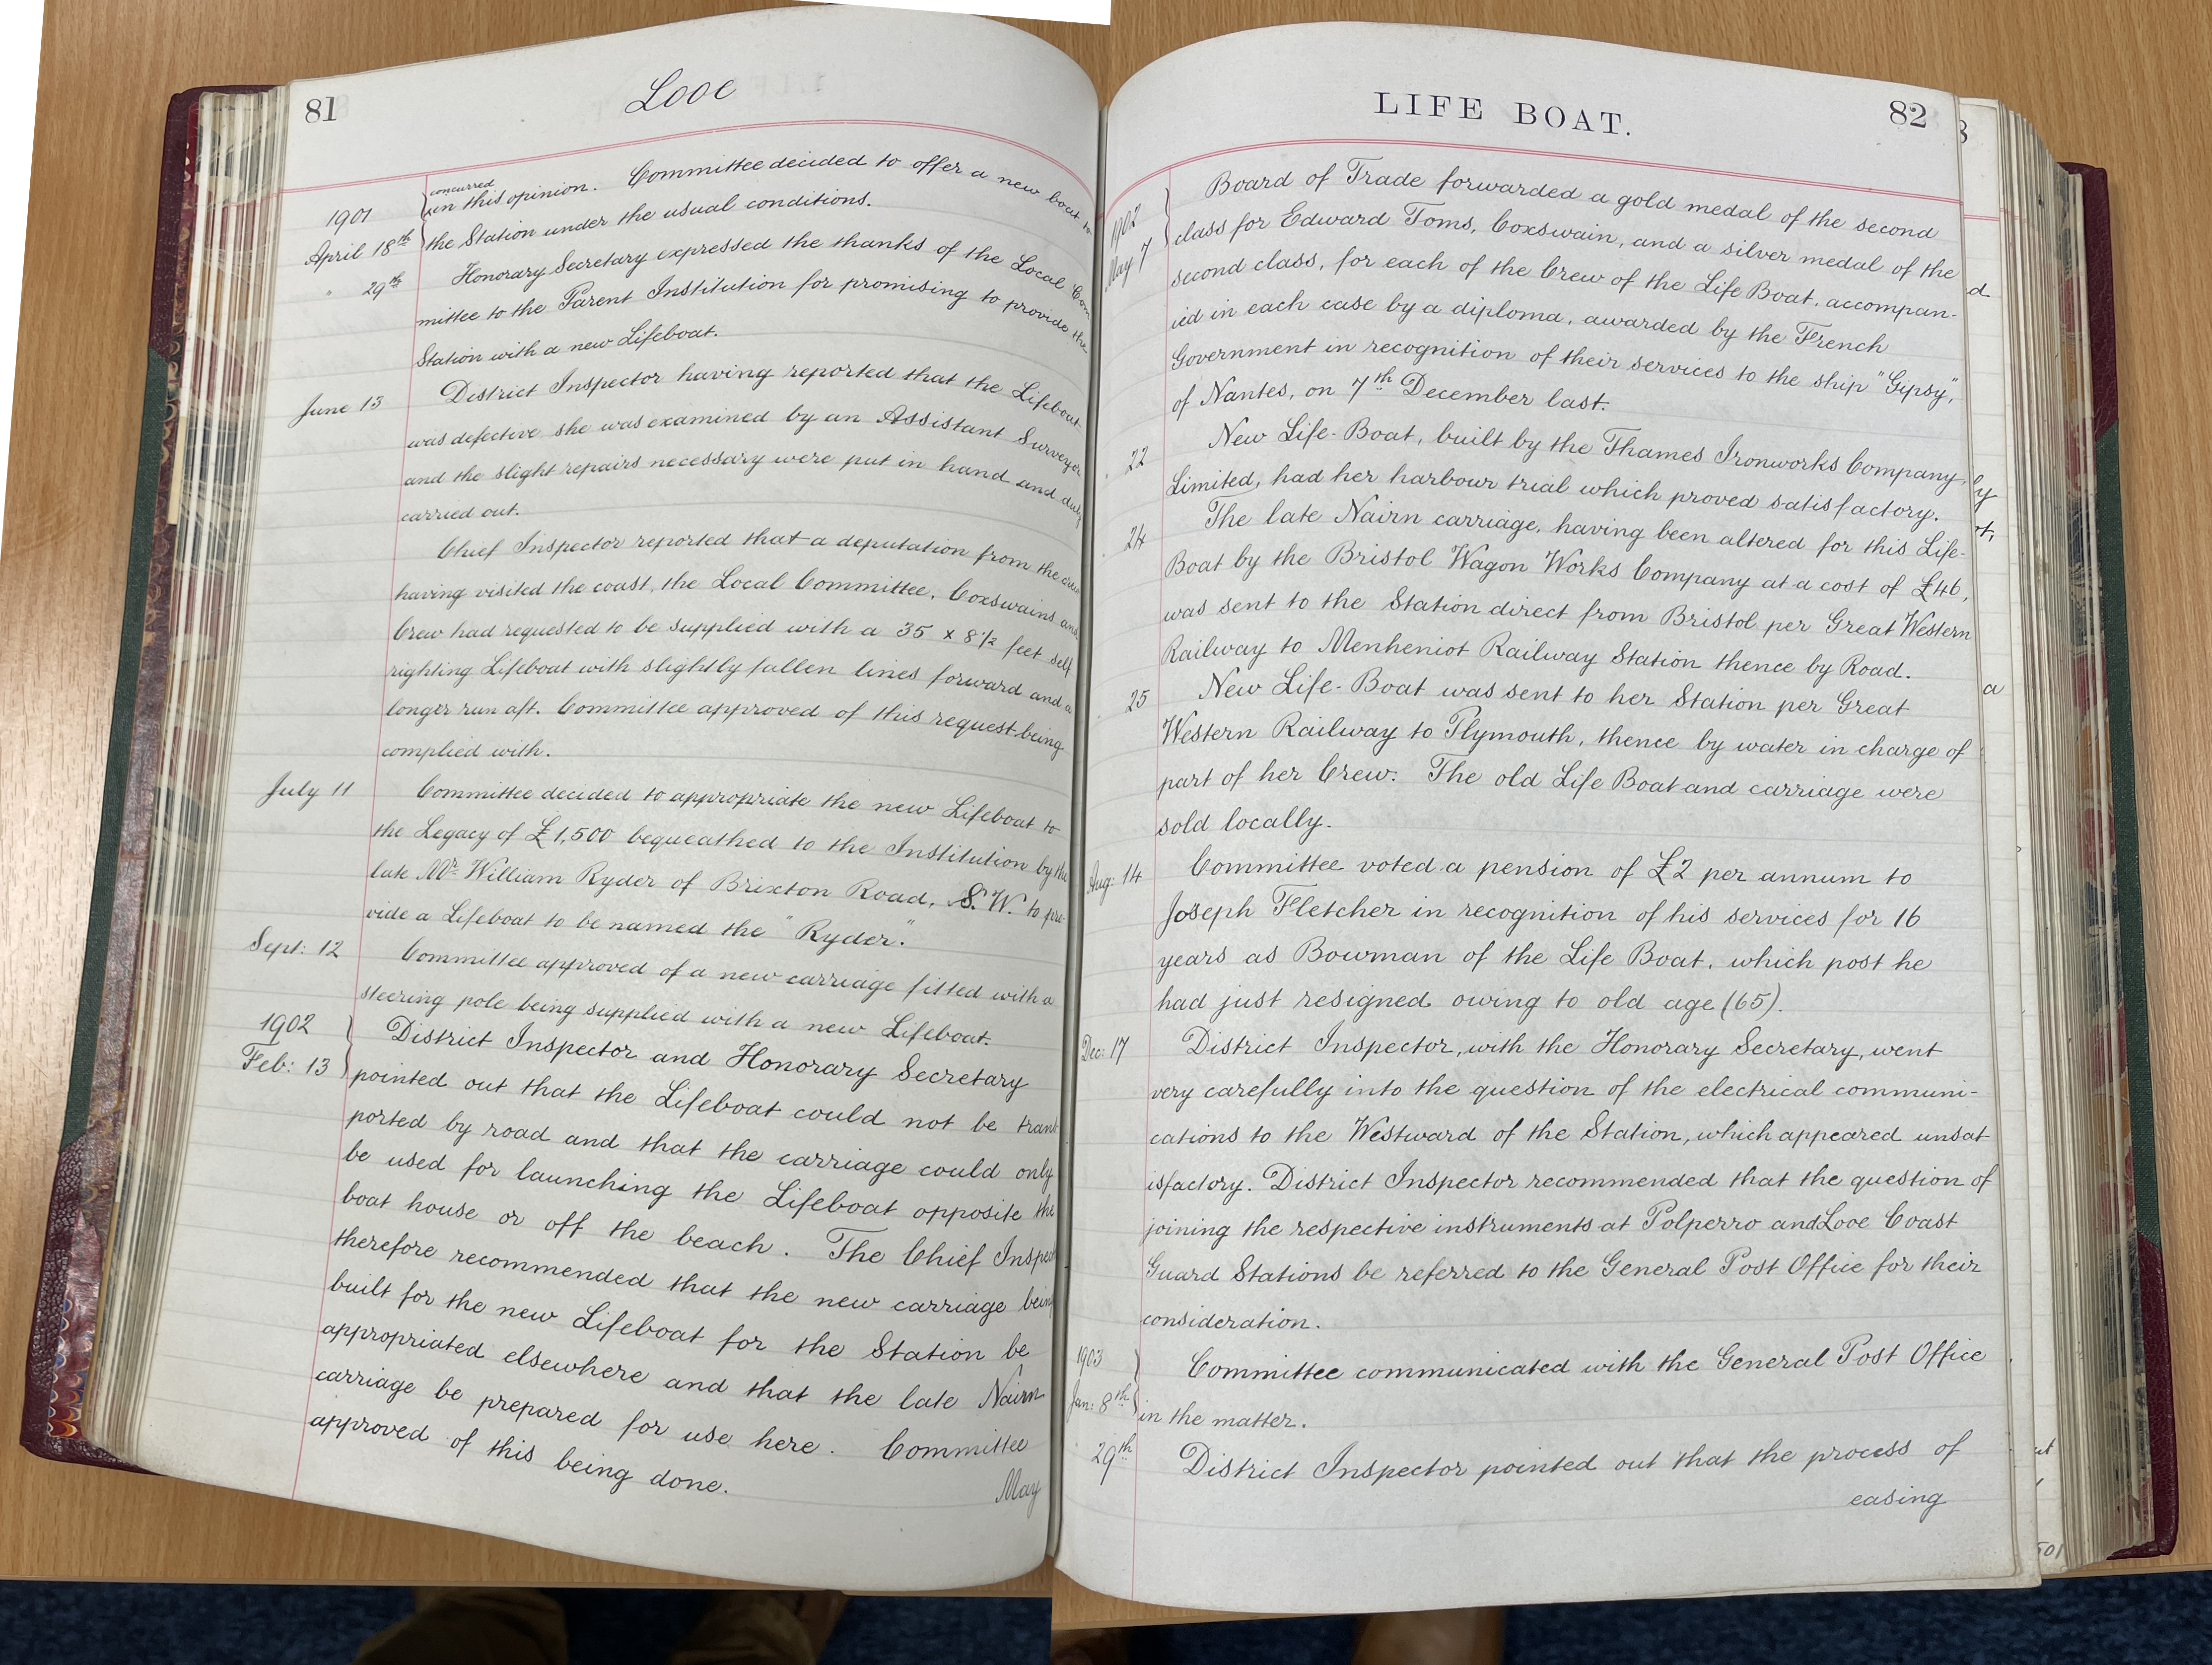 81
Looe
1901
April 18th
concurred
in this opinion. Committee decided to offer a new boat to
the Station under the usual conditions.
" 29th
Honorary Secretary expressed the thanks of the Local Com
mittee to the Parent Institution for promising to provide the
Station with a new Lifeboat.
June 13
District Inspector having reported that the Lifeboat
was defective she was examined by an Assistant Surveyor
and the slight repairs necessary were put in hand and duly
carried out.
Chief Inspector reported that a deputation from the crew
having visited the coast, the Local Committee, Coxswains and
Crew had requested to be supplied with a 35 x 8½ feet self
righting Lifeboat with slightly fallen lines forward and a
longer run aft. Committee approved of this request being
complied with.
July 11
Committee decided to appropriate the new Lifeboat to
the Legacy of £1,500 bequeathed to the Institution by the
late Mr. William Ryder of Brixton Road, S.W. to pro-
vide a Lifeboat to be named the "Ryder".
Sept: 12
Committee approved of a new carriage fitted with a
steering pole being supplied with a new Lifeboat.
1902
Feb: 13
District Inspector and Honorary Secretary
pointed out that the Lifeboat could not be trans
ported by road and that the carriage could only
be used for launching the Lifeboat opposite the
boat house or off the beach. The Chief Inspec
therefore recommended that the new carriage being
built for the new Lifeboat for the Station be
appropriated elsewhere and that the late Nairn
carriage be prepared for use here. Committee
approved of this being done.
May
LIFE BOAT.
82
1902
May 7
Board of Trade forwarded a gold medal of the second
class for Edward Toms, Coxswain, and a silver medal of the
second class, for each of the Crew of the Life Boat, accompan-
ied in each case by a diploma, awarded by the French
Government in recognition of their services to the ship "Gipsy",
of Nantes, on 7th December last.
22
New Life-Boat, built by the Thames Ironworks Company,
Limited, had her harbour trial which proved satisfactory.
24
The late Nairn carriage, having been altered for this Life-
Boat by the Bristol Wagon Works Company at a cost of £46,
was sent to the Station direct from Bristol per Great Western
Railway to Menheniot Railway Station thence by Road.
25
New Life-Boat was sent to her Station per Great
Western Railway to Plymouth, thence by water in charge of
part of her Crew. The old Life Boat and carriage were
sold locally.
Aug: 14
Committee voted a pension of £2 per annum to
Joseph Fletcher in recognition of his services for 16
years as Bowman of the Life Boat, which post he
had just resigned owing to old age (65).
Dec: 17
District Inspector, with the Honorary Secretary, went
very carefully into the question of the electrical communi-
cations to the Westward of the Station, which appeared unsat-
isfactory. District Inspector recommended that the question of
joining the respective instruments at Polperro and Looe Coast
Guard Stations be referred to the General Post Office for their
consideration.
1903
Jan: 8th
Committee communicated with the General Post Office
in the matter.
29th
District Inspector pointed out that the process of
easing